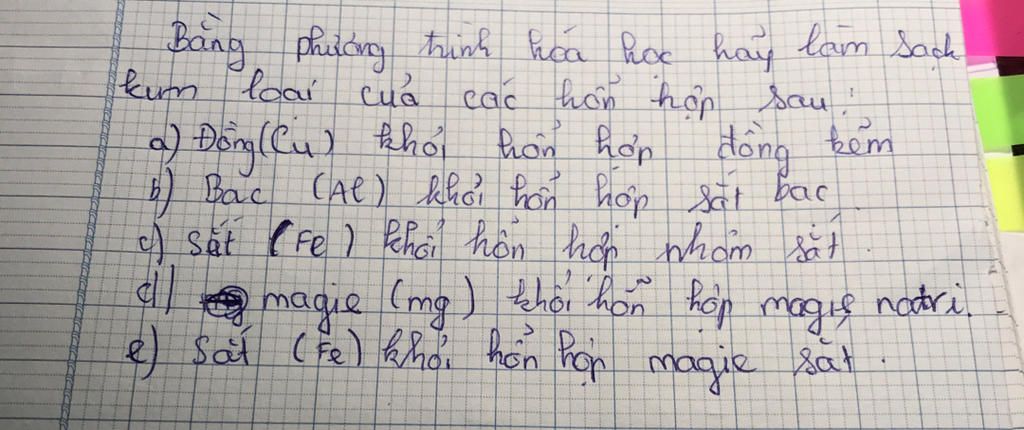 Bằng phương trình hóa học hãy làm sạch
kum loại của các hỗn hợp sau:
a) Đồng (Cu) khỏi hỗn hợp đồng kẽm
b) Bạc (Al) khỏi hỗn hợp sắt bạc
c) sắt (Fe) khỏi hỗn hợp nhôm sắt.
d) magie (mg) khỏi hỗn hợp magie natri.
e) sắt (Fe) khỏi hỗn hợp magie sắt.